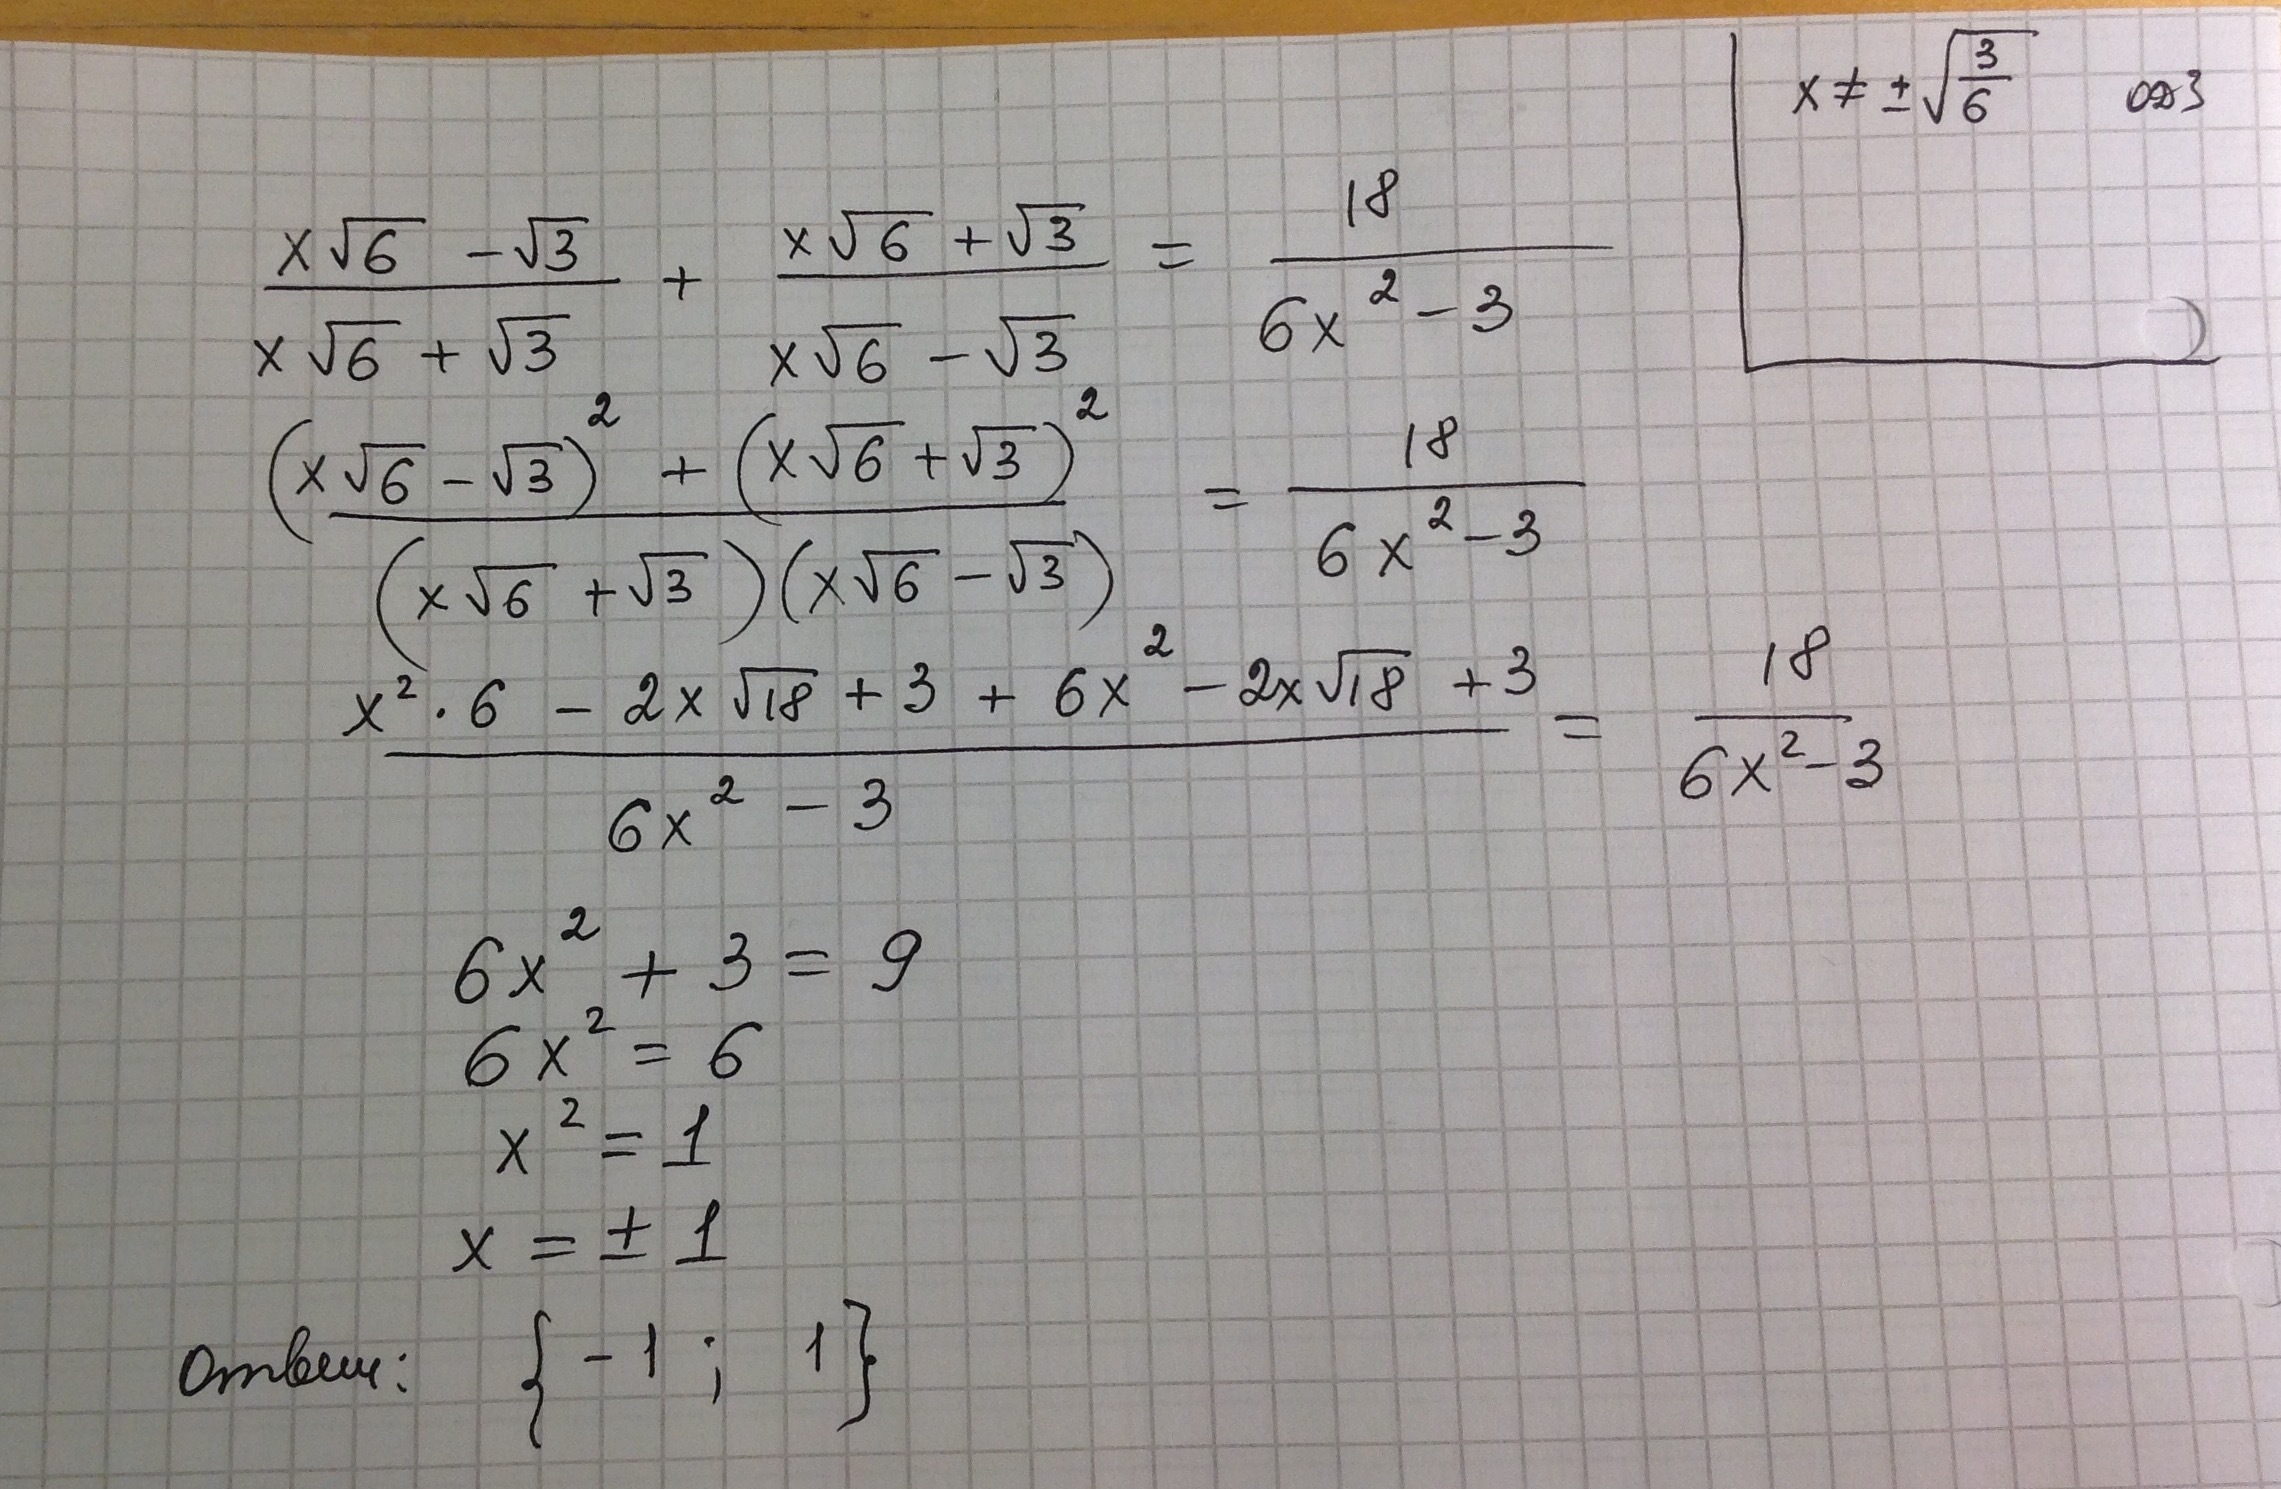 x ≠ ±√(3/6) ОДЗ
(x√6 − √3)/(x√6 + √3) + (x√6 + √3)/(x√6 − √3) = 18/(6x² − 3)
((x√6 − √3)² + (x√6 + √3)²)/((x√6 + √3)(x√6 − √3)) = 18/(6x² − 3)
(x² · 6 − 2x√18 + 3 + 6x² − 2x√18 + 3)/(6x² − 3) = 18/(6x² − 3)
6x² + 3 = 9
6x² = 6
x² = 1
x = ± 1
Ответ: {−1 ; 1}